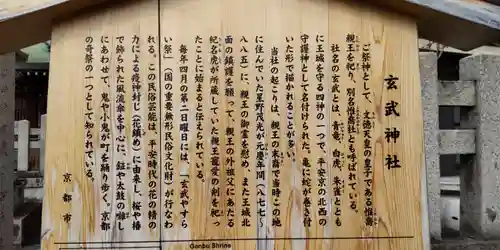 玄武神社
ご祭神として、文徳天皇の皇子である惟喬
親王を祀り、別名惟喬社とも呼ばれている。
社名の玄武とは、青龍、白虎、朱雀ととも
に王城を守る四神の一つで、平安京の北面の
守護神として名付けられた。亀に蛇が巻き付
いた形で描かれることが多い。
当社の起こりは、親王の末裔で当時この地
に住んでいた星野茂光が元慶年間（八七七～
八八五）、親王の御霊を慰め、また王城北
面の鎮護を願って、親王の外祖父にあたる
紀名虎が所蔵していた親王寵愛の剣を祀っ
たことに始まると伝えられている。
毎年四月の第二日曜には、「玄武やすら
い祭」（国の重要無形民俗文化財）が行なわ
れる。この民俗芸能は、平安時代の花の精の
力による疫神封じ（花鎮め）に由来し、桜や椿
で飾られた風流傘を中心に、鉦や太鼓の囃し
にあわせて、鬼や小鬼が町を踊り歩く、京都
の奇祭の一つとして知られている。
京都市
Genbu Shrine